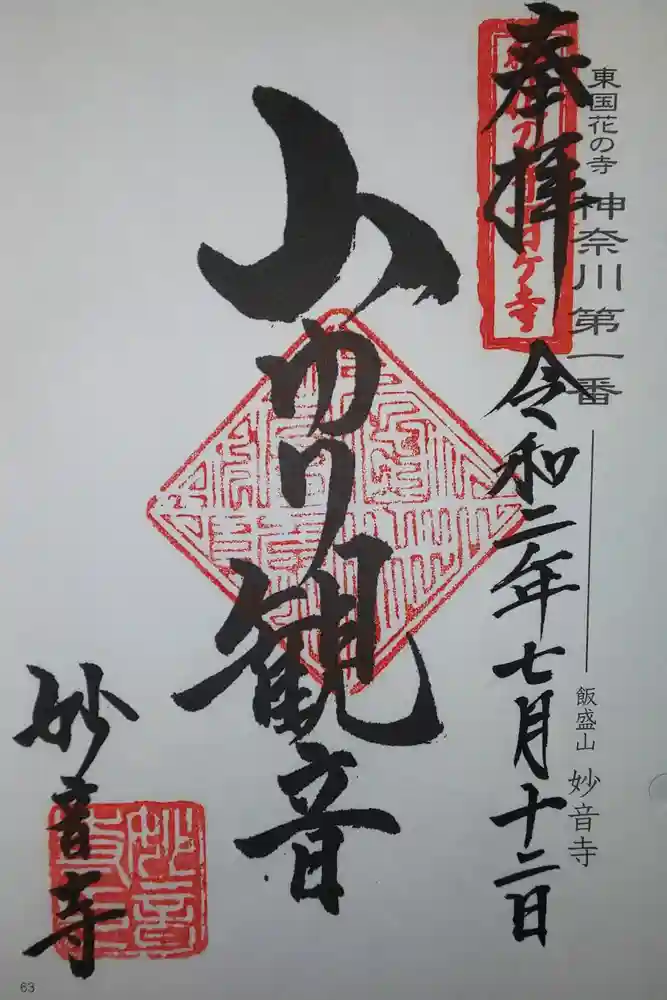 東国花の寺 神奈川第一番
飯盛山 妙音寺
奉拝 令和二年七月十二日
山ゆり観音
妙音寺
63